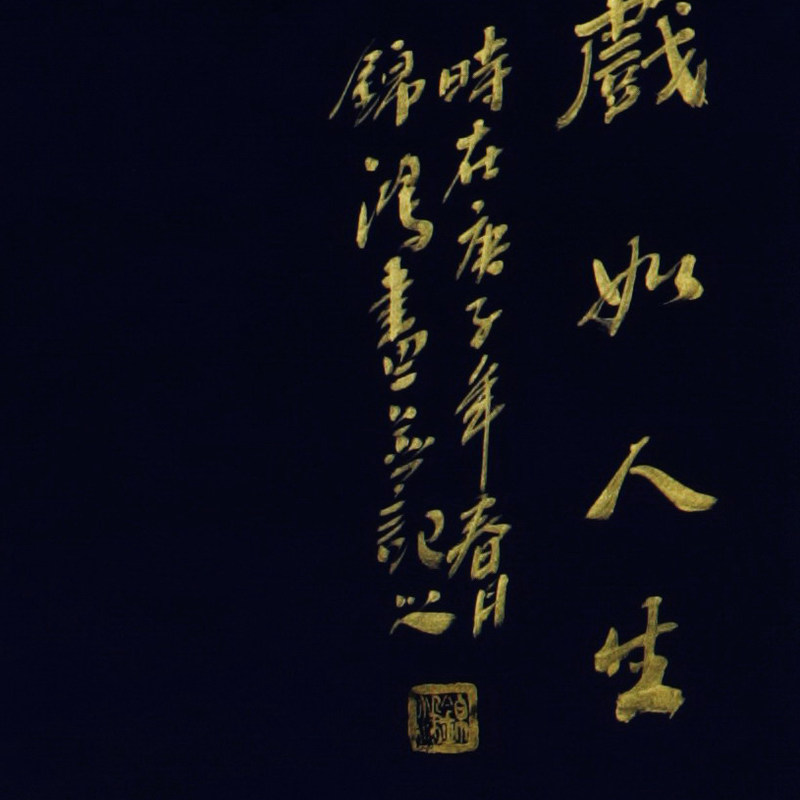 戲如人生
時在庚子年春月
錦鴻畫並記之